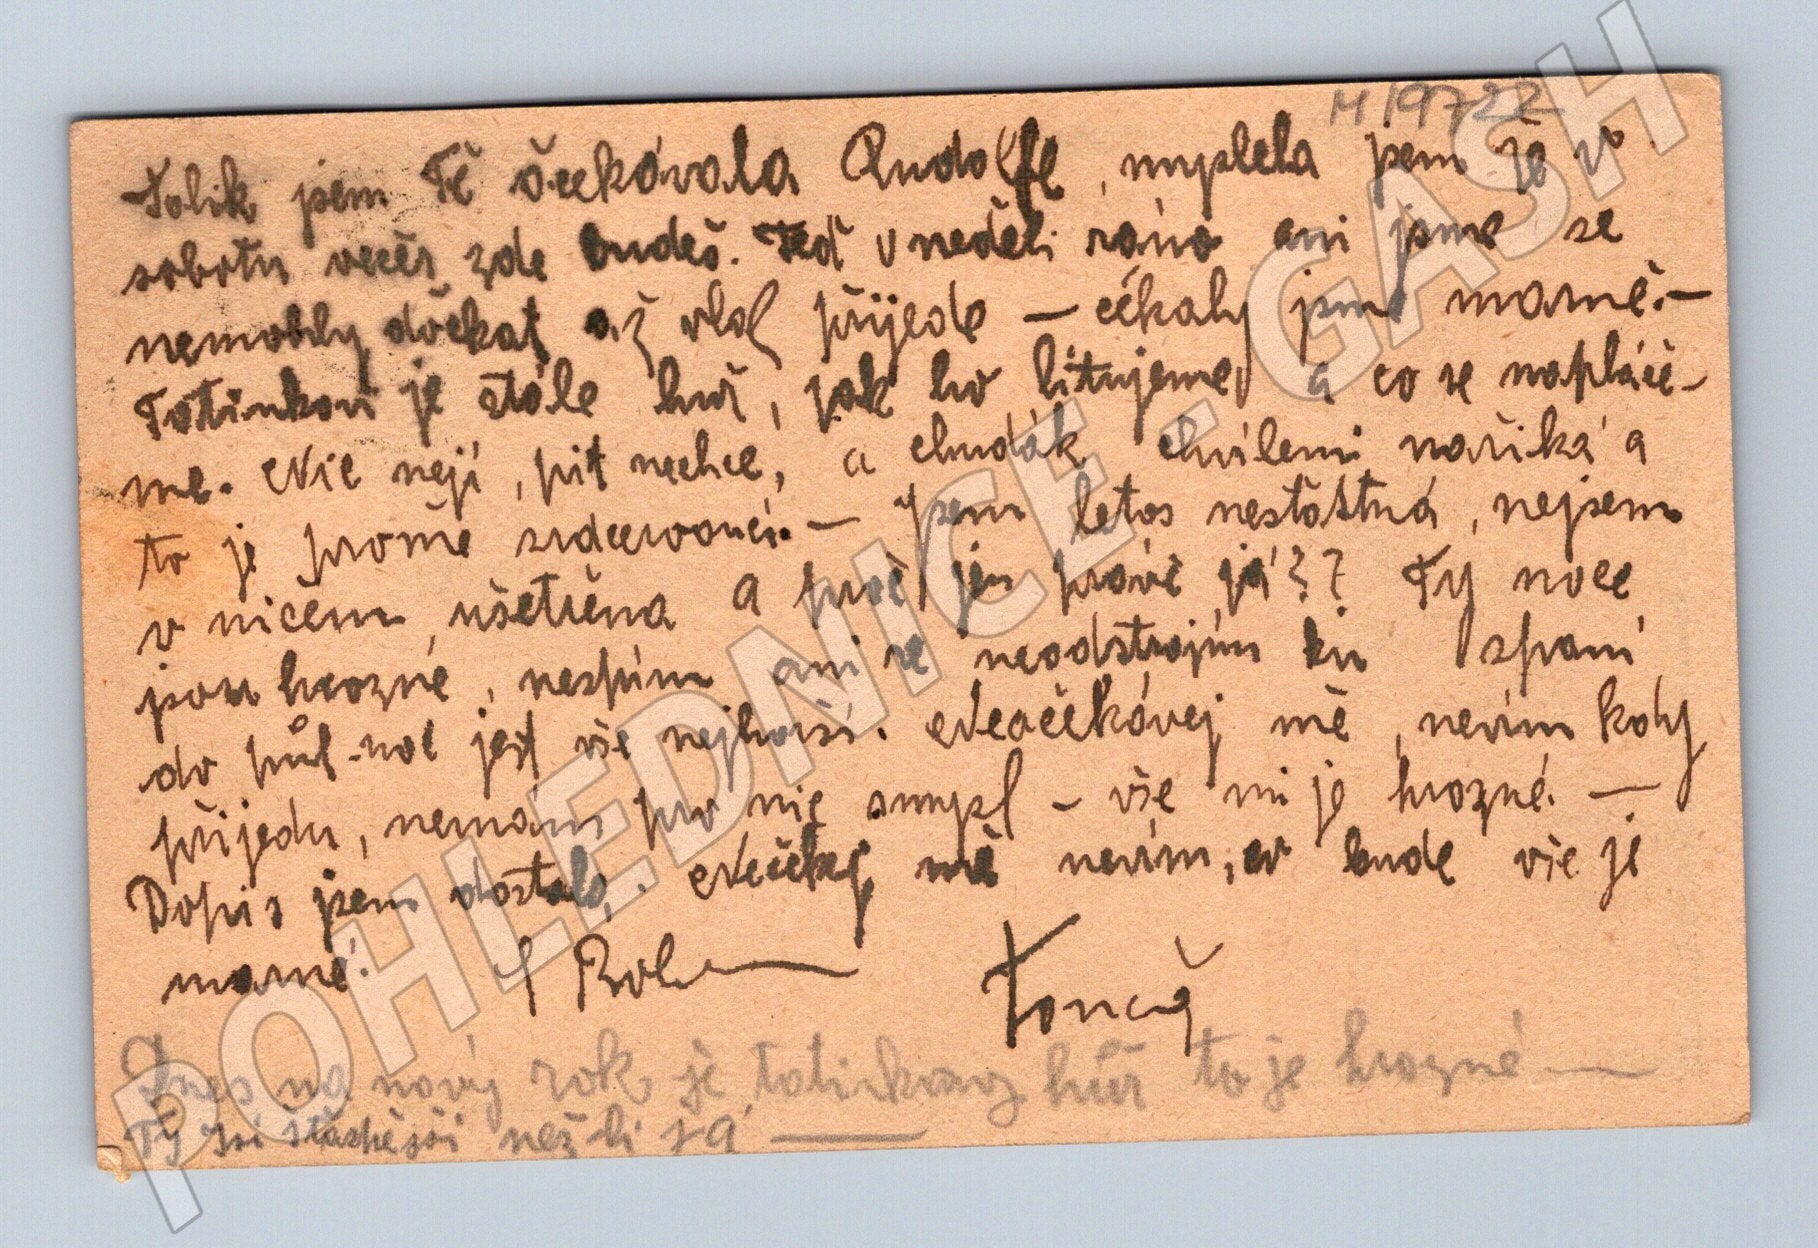 M 19722
Tolik jsem Tě očekávala Rudolfe, myslela jsem že v
sobotu večer zde budeš. Teď v neděli ráno ani jsme se
nemohly dočkat až vlak přijede – čekaly jsme marně. –
Tatínkovi je stále hůř, jak ho litujeme a co se napláče-
me. Nic nejí, pít nechce, a chudák chvílemi naříká a
to je pro mě srdcervoucí. – Jsem letos nešťastná, nejsem
v ničem ušetřena a proč jen právě já?? Ty noce
jsou hrozné, nespím ani se neodstrojím ku spaní
do půl-noc jest vše nejhorší. Neočekávej mě, nevím kdy
přijedu, nemám pro nic smysl – vše mi je hrozné. –
Dopis jsem dostala. Nečekej mě nevím, co bude vše je
marné.
Tonča
Dnes na nový rok je tatínkovi hůř to je hrozné –
Ty jsi šťastnější nežli já –
POHLEDNICE - GASH